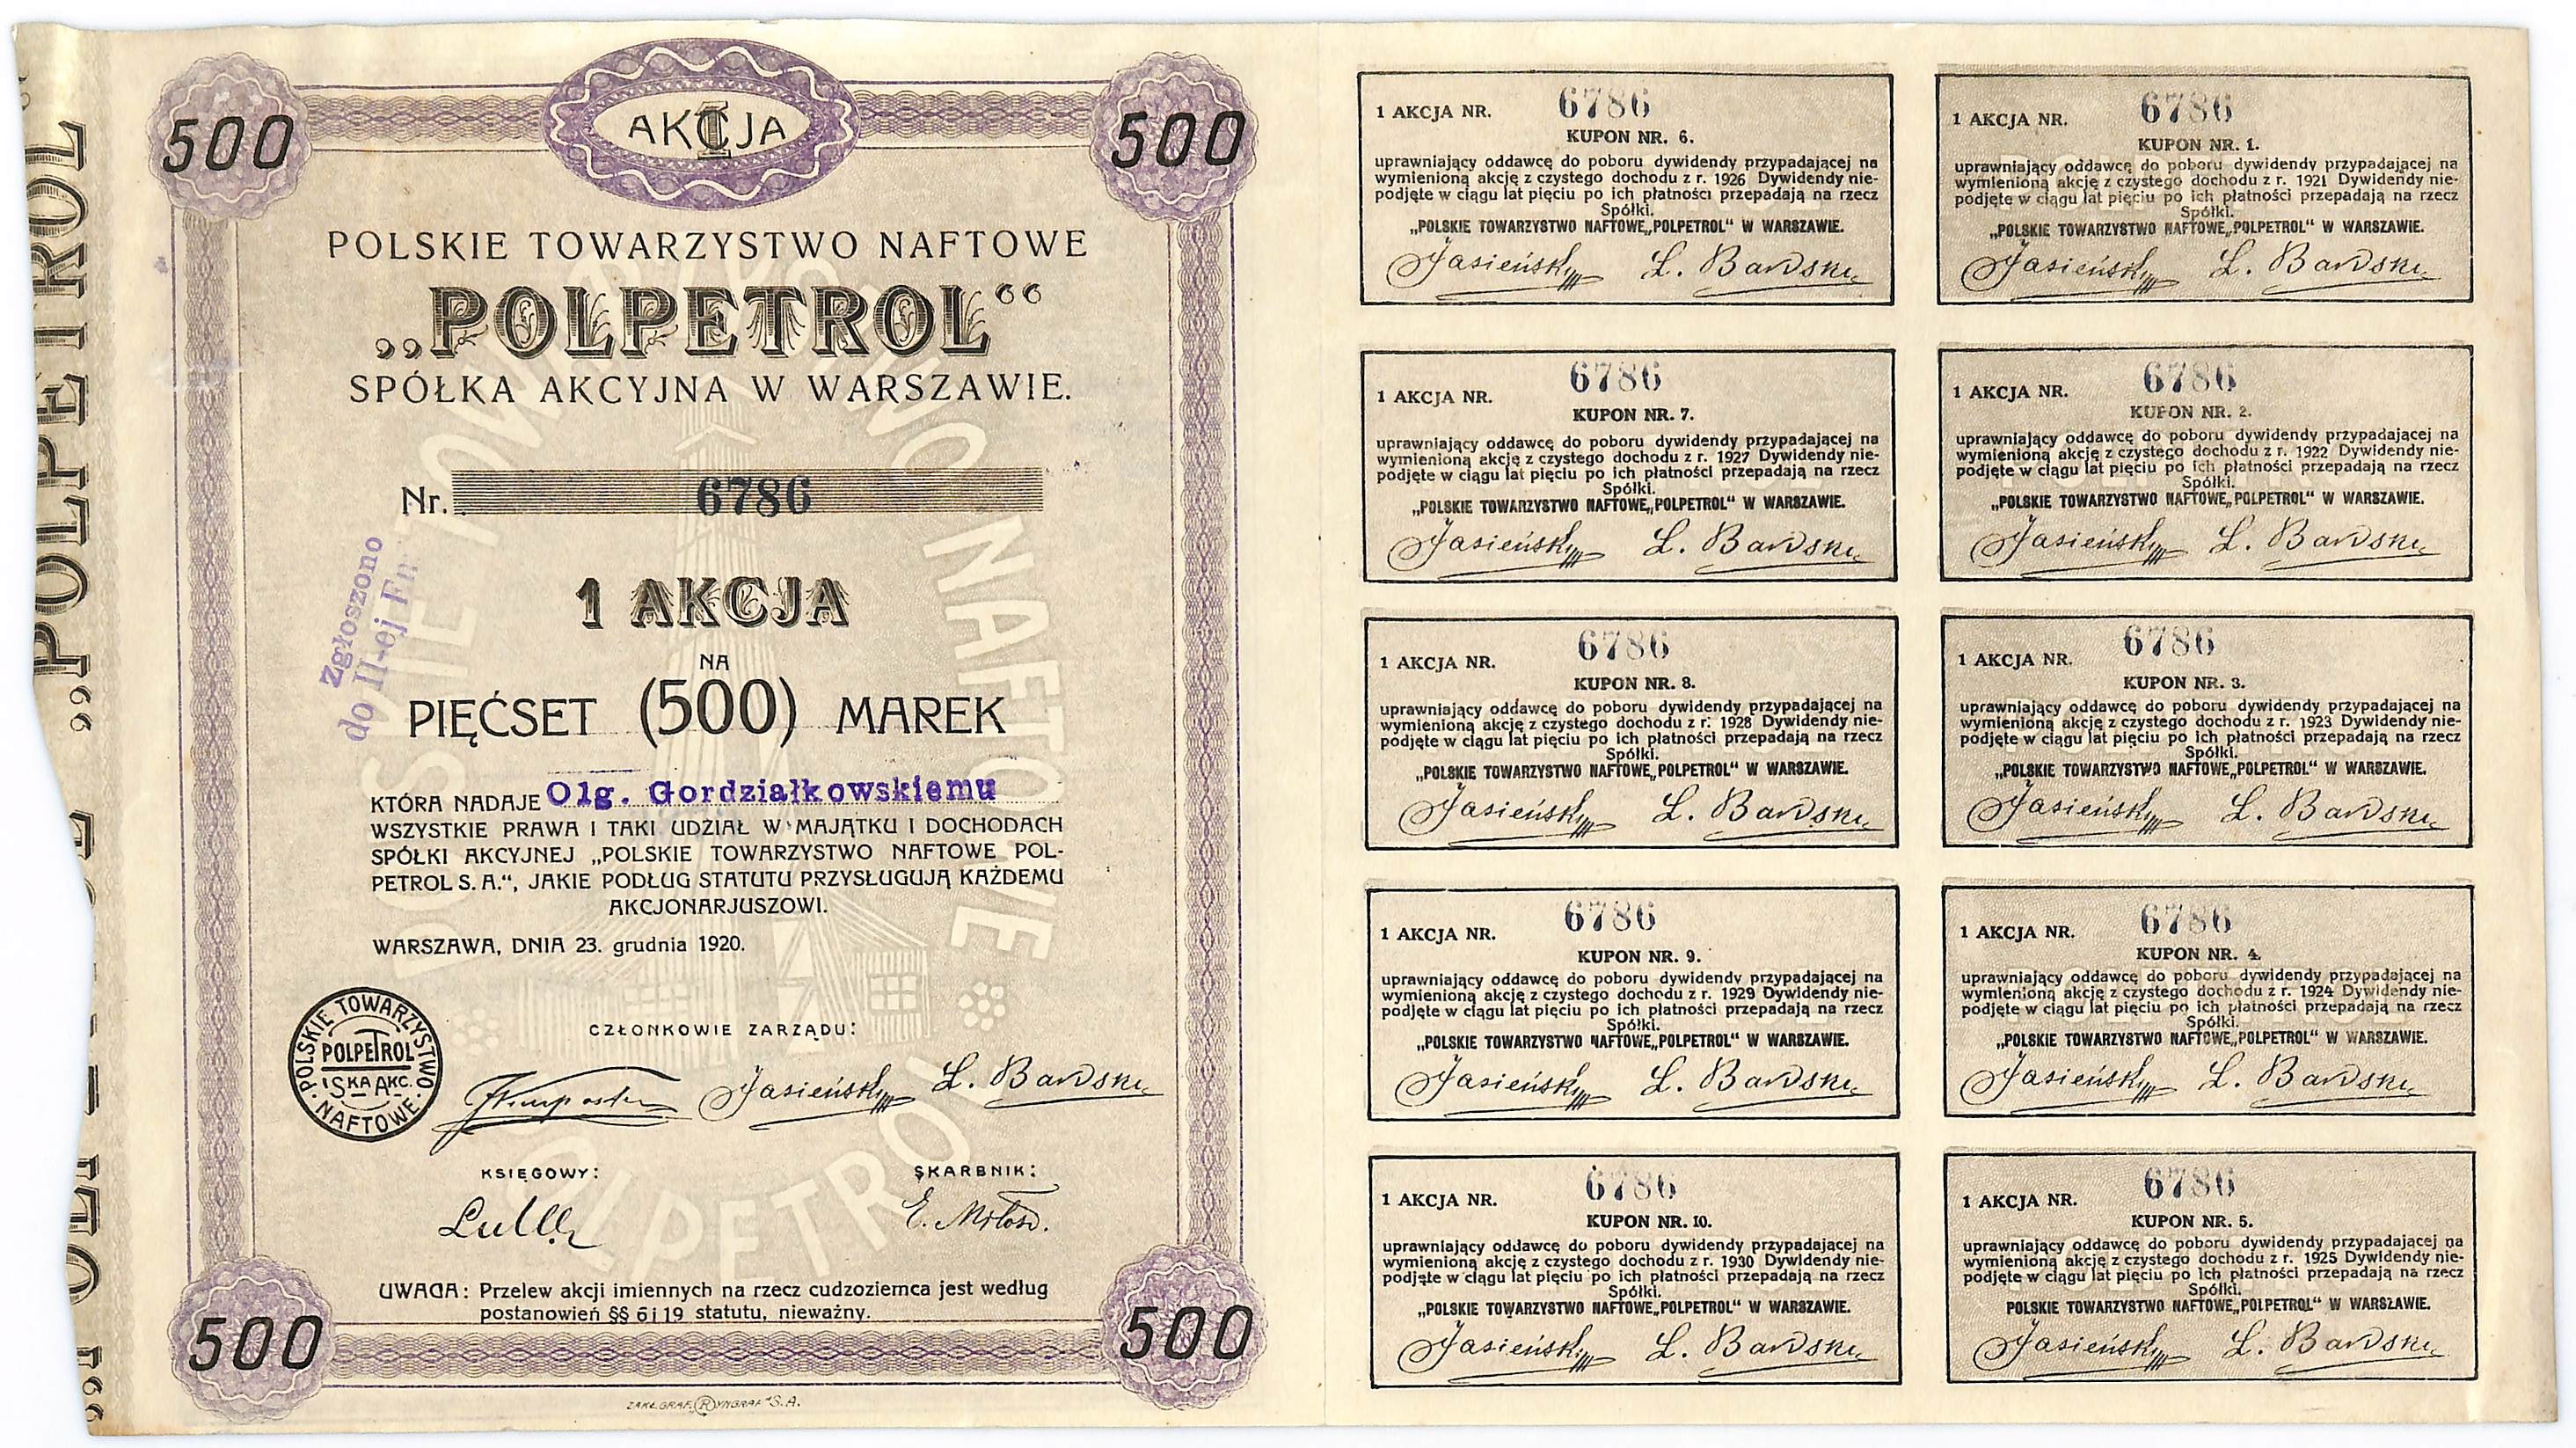 „POLPETROL“
500
1
AKCJA
500
POLSKIE TOWARZYSTWO NAFTOWE
„POLPETROL“
SPÓŁKA AKCYJNA W WARSZAWIE.
Nr. 6786
Zgłoszono
do II-ej Em
1 AKCJA
NA
PIĘĆSET (500) MAREK
KTÓRA NADAJE Olg. Gordziałkowskiemu
WSZYSTKIE PRAWA I TAKI UDZIAŁ W MAJĄTKU I DOCHODACH
SPÓŁKI AKCYJNEJ „POLSKIE TOWARZYSTWO NAFTOWE POL-
PETROL S. A.“, JAKIE PODŁUG STATUTU PRZYSŁUGUJĄ KAŻDEMU
AKCJONARJUSZOWI.
WARSZAWA, DNIA 23. grudnia 1920.
POLSKIE TOWARZYSTWO NAFTOWE
POLPETROL
SKA AKC.
CZŁONKOWIE ZARZĄDU:
Jasieński L. Bardski
KSIĘGOWY: SKARBNIK:
E. Miłosz.
UWAGA: Przelew akcji imiennych na rzecz cudzoziemca jest według
postanowień §§ 6 i 19 statutu, nieważny.
500
500
ZAKŁ. GRAF. „RYNGRAF“ S. A.
POLSKIE TOWARZYSTWO NAFTOWE
POLPETROL
1 AKCJA NR. 6786
KUPON NR. 6.
uprawniający oddawcę do poboru dywidendy przypadającej na
wymienioną akcję z czystego dochodu z r. 1926 Dywidendy nie-
podjęte w ciągu lat pięciu po ich płatności przepadają na rzecz
Spółki.
„POLSKIE TOWARZYSTWO NAFTOWE„POLPETROL“ W WARSZAWIE.
Jasieński L. Bardski
1 AKCJA NR. 6786
KUPON NR. 1.
uprawniający oddawcę do poboru dywidendy przypadającej na
wymienioną akcję z czystego dochodu z r. 1921 Dywidendy nie-
podjęte w ciągu lat pięciu po ich płatności przepadają na rzecz
Spółki.
„POLSKIE TOWARZYSTWO NAFTOWE„POLPETROL“ W WARSZAWIE.
Jasieński L. Bardski
1 AKCJA NR. 6786
KUPON NR. 7.
uprawniający oddawcę do poboru dywidendy przypadającej na
wymienioną akcję z czystego dochodu z r. 1927 Dywidendy nie-
podjęte w ciągu lat pięciu po ich płatności przepadają na rzecz
Spółki.
„POLSKIE TOWARZYSTWO NAFTOWE„POLPETROL“ W WARSZAWIE.
Jasieński L. Bardski
1 AKCJA NR. 6786
KUPON NR. 2.
uprawniający oddawcę do poboru dywidendy przypadającej na
wymienioną akcję z czystego dochodu z r. 1922 Dywidendy nie-
podjęte w ciągu lat pięciu po ich płatności przepadają na rzecz
Spółki.
„POLSKIE TOWARZYSTWO NAFTOWE„POLPETROL“ W WARSZAWIE.
Jasieński L. Bardski
1 AKCJA NR. 6786
KUPON NR. 8.
uprawniający oddawcę do poboru dywidendy przypadającej na
wymienioną akcję z czystego dochodu z r. 1928 Dywidendy nie-
podjęte w ciągu lat pięciu po ich płatności przepadają na rzecz
Spółki.
„POLSKIE TOWARZYSTWO NAFTOWE„POLPETROL“ W WARSZAWIE.
Jasieński L. Bardski
1 AKCJA NR. 6786
KUPON NR. 3.
uprawniający oddawcę do poboru dywidendy przypadającej na
wymienioną akcję z czystego dochodu z r. 1923 Dywidendy nie-
podjęte w ciągu lat pięciu po ich płatności przepadają na rzecz
Spółki.
„POLSKIE TOWARZYSTWO NAFTOWE„POLPETROL“ W WARSZAWIE.
Jasieński L. Bardski
1 AKCJA NR. 6786
KUPON NR. 9.
uprawniający oddawcę do poboru dywidendy przypadającej na
wymienioną akcję z czystego dochodu z r. 1929 Dywidendy nie-
podjęte w ciągu lat pięciu po ich płatności przepadają na rzecz
Spółki.
„POLSKIE TOWARZYSTWO NAFTOWE„POLPETROL“ W WARSZAWIE.
Jasieński L. Bardski
1 AKCJA NR. 6786
KUPON NR. 4.
uprawniający oddawcę do poboru dywidendy przypadającej na
wymienioną akcję z czystego dochodu z r. 1924 Dywidendy nie-
podjęte w ciągu lat pięciu po ich płatności przepadają na rzecz
Spółki.
„POLSKIE TOWARZYSTWO NAFTOWE„POLPETROL“ W WARSZAWIE.
Jasieński L. Bardski
1 AKCJA NR. 6786
KUPON NR. 10.
uprawniający oddawcę do poboru dywidendy przypadającej na
wymienioną akcję z czystego dochodu z r. 1930 Dywidendy nie-
podjęte w ciągu lat pięciu po ich płatności przepadają na rzecz
Spółki.
„POLSKIE TOWARZYSTWO NAFTOWE„POLPETROL“ W WARSZAWIE.
Jasieński L. Bardski
1 AKCJA NR. 6786
KUPON NR. 5.
uprawniający oddawcę do poboru dywidendy przypadającej na
wymienioną akcję z czystego dochodu z r. 1925 Dywidendy nie-
podjęte w ciągu lat pięciu po ich płatności przepadają na rzecz
Spółki.
POLSKIE TOWARZYSTWO NAFTOWE„POLPETROL“ W WARSZAWIE.
Jasieński L. Bardski